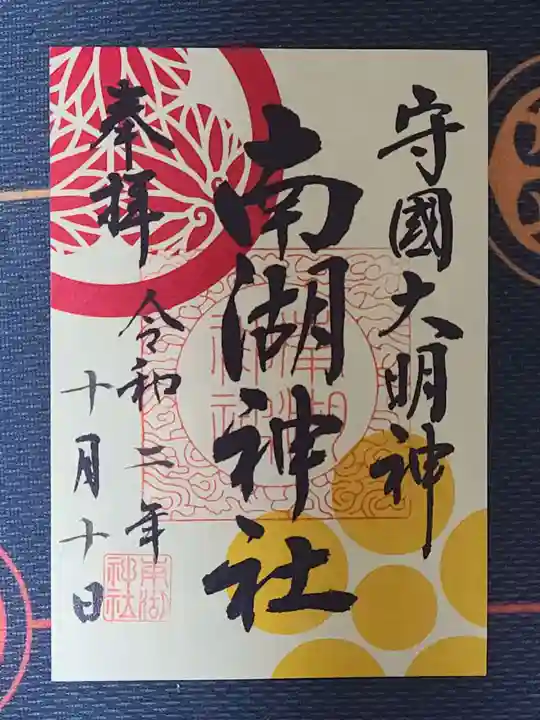 守國大明神
南湖神社
奉拝
令和二年
十月十日
南湖
神社
南湖
神社